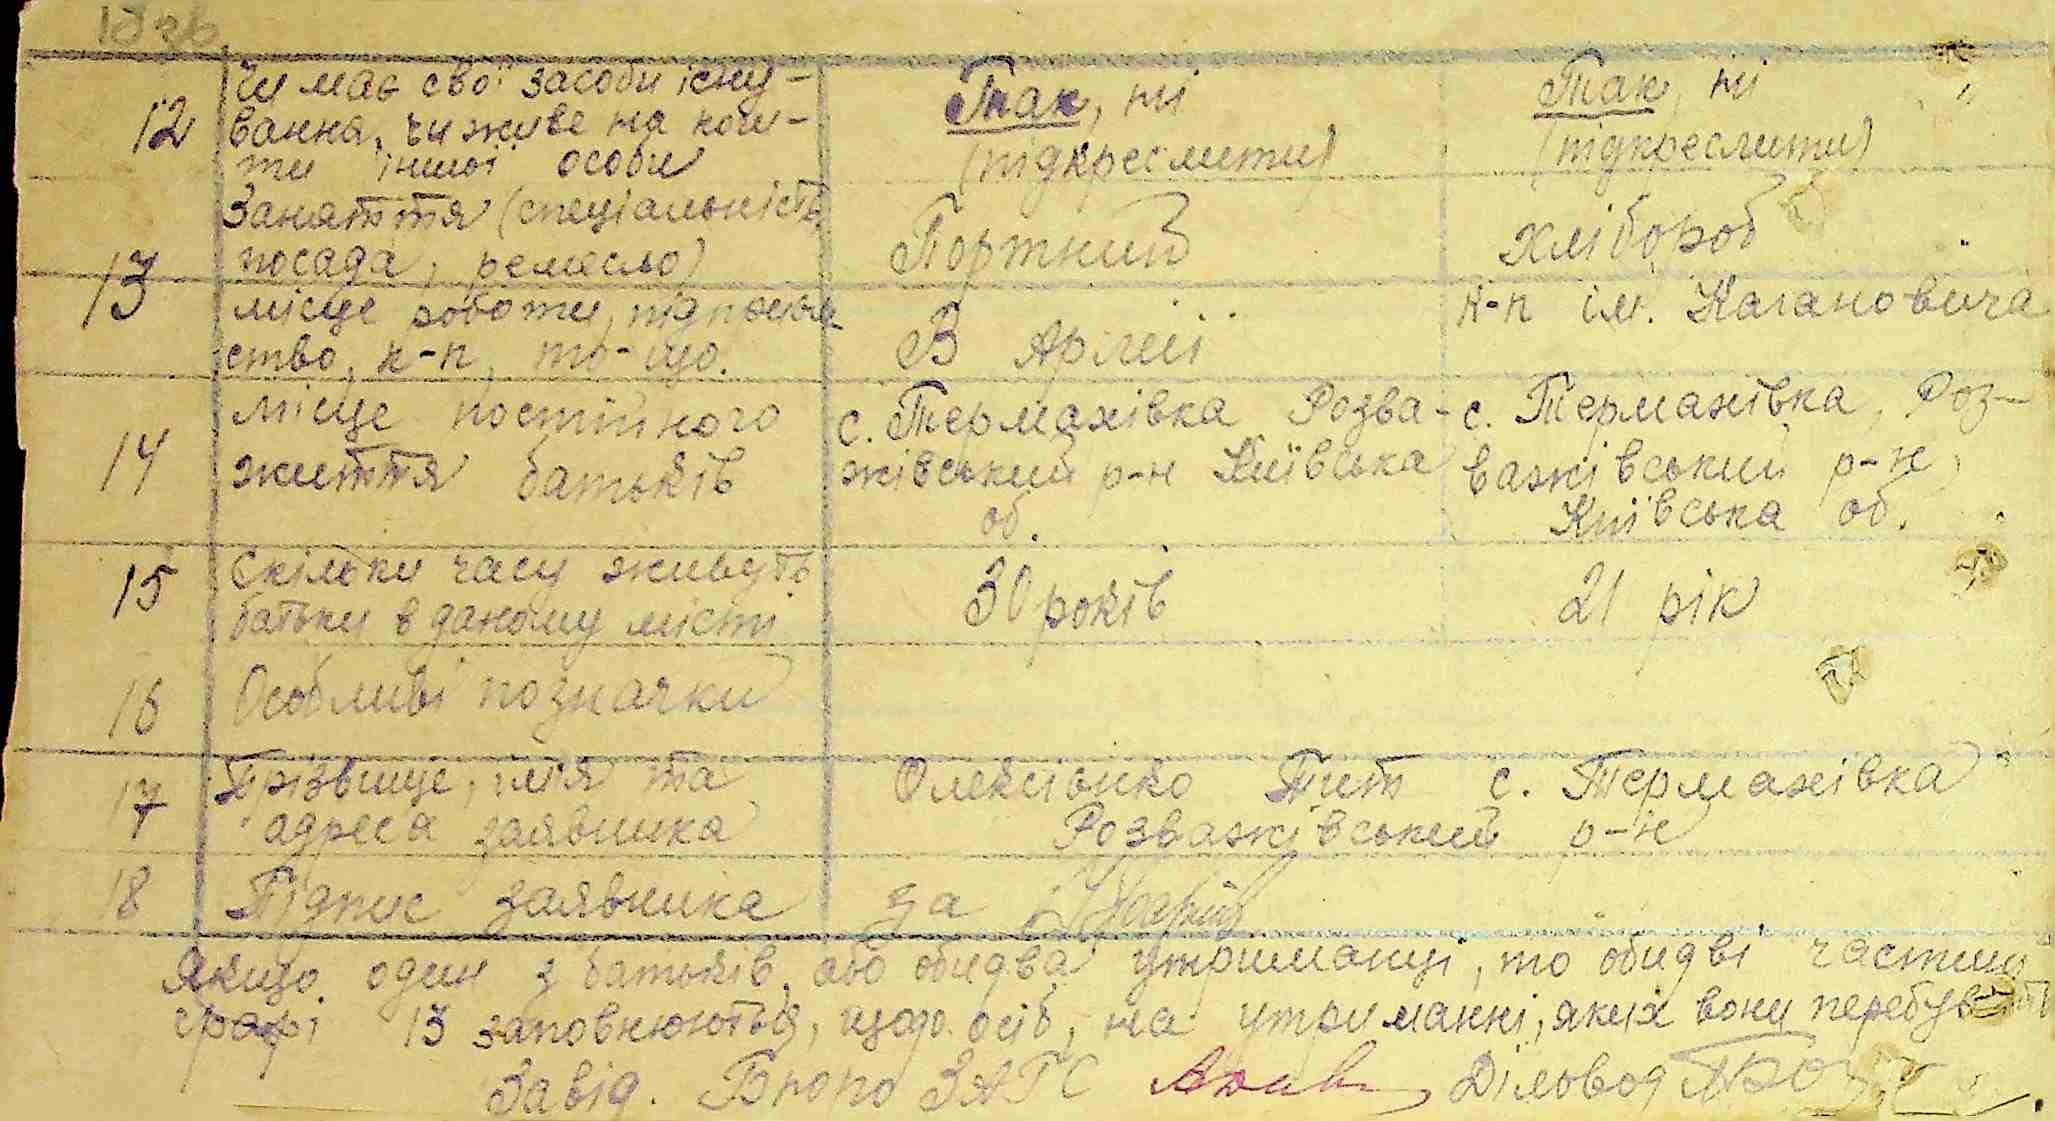 12 Чи має свої засоби існу-
вання, чи живе на кош-
ти іншої особи
Так, ні
(підкреслити)
Так, ні
(підкреслити)
13 Заняття (спеціальність,
посада, ремесло)
Портний
хлібороб
місце роботи, підприєм-
ство, к-п, то-що.
В Армії
к-п ім. Кагановича
14 Місце постійного
життя батьків
с. Термахівка Розва-
жівський р-н Київська
об.
с. Термахівка, Роз-
важівський р-н,
Київська об.
15 Скільки часу живуть
батьки в даному місті
30 років
21 рік
16 Особливі позначки
17 Прізвище, ім'я та
адреса заявника
Олексієнко Тит с. Термахівка
Розважівський р-н
18 Підпис заявника
за
Якщо один з батьків, або обидва утриманці, то обидві частини
графі 13 заповнюються, щодо осіб, на утриманні, яких вони перебувають
Завід. Бюро ЗАГС Діловод